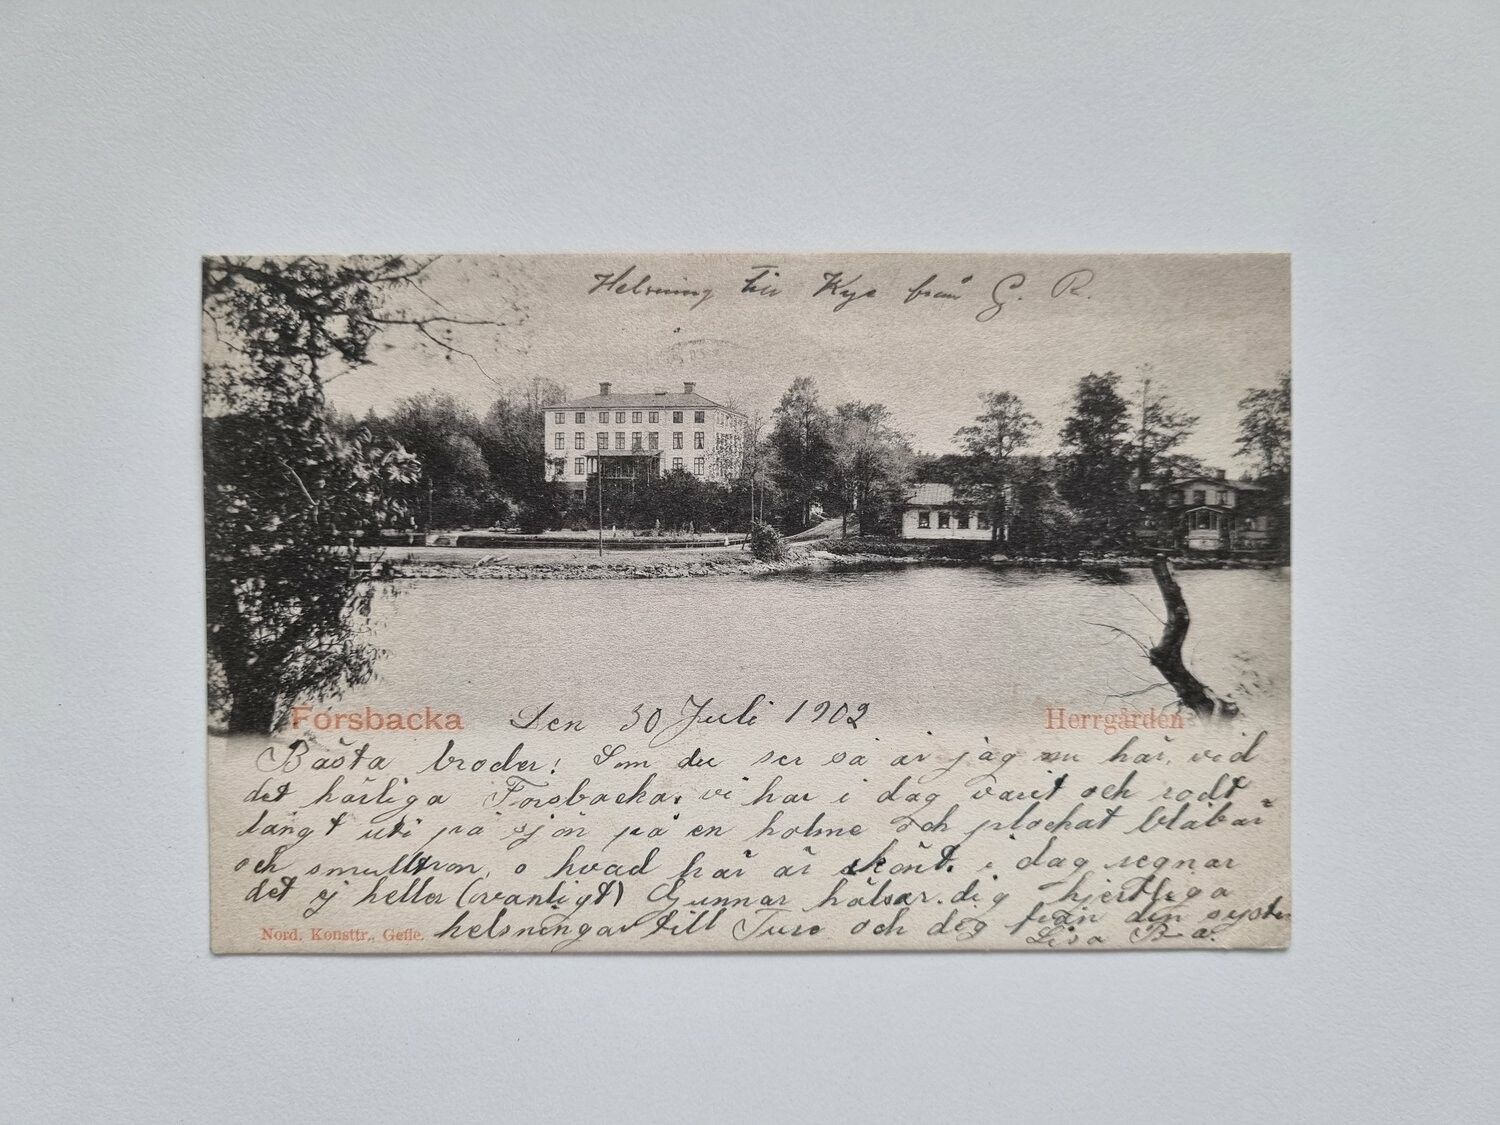 Helsning till Kyc från G. R.
Forsbacka Den 30 Juli 1902 Herrgården
Bästa broder! Som du ser så är jag nu här, vid
det härliga Forsbacka. vi har i dag varit och rodt
långt uti på sjön på en holme och plockat blåbär
och smulltron, o hvad här är skönt. i dag regnar
det ej heller (ovanligt) Gunnar hälsar dig hjertliga
Nord. Konsttr., Gefle. helsningar till Ture och dig från din syster
Lisa B-a.